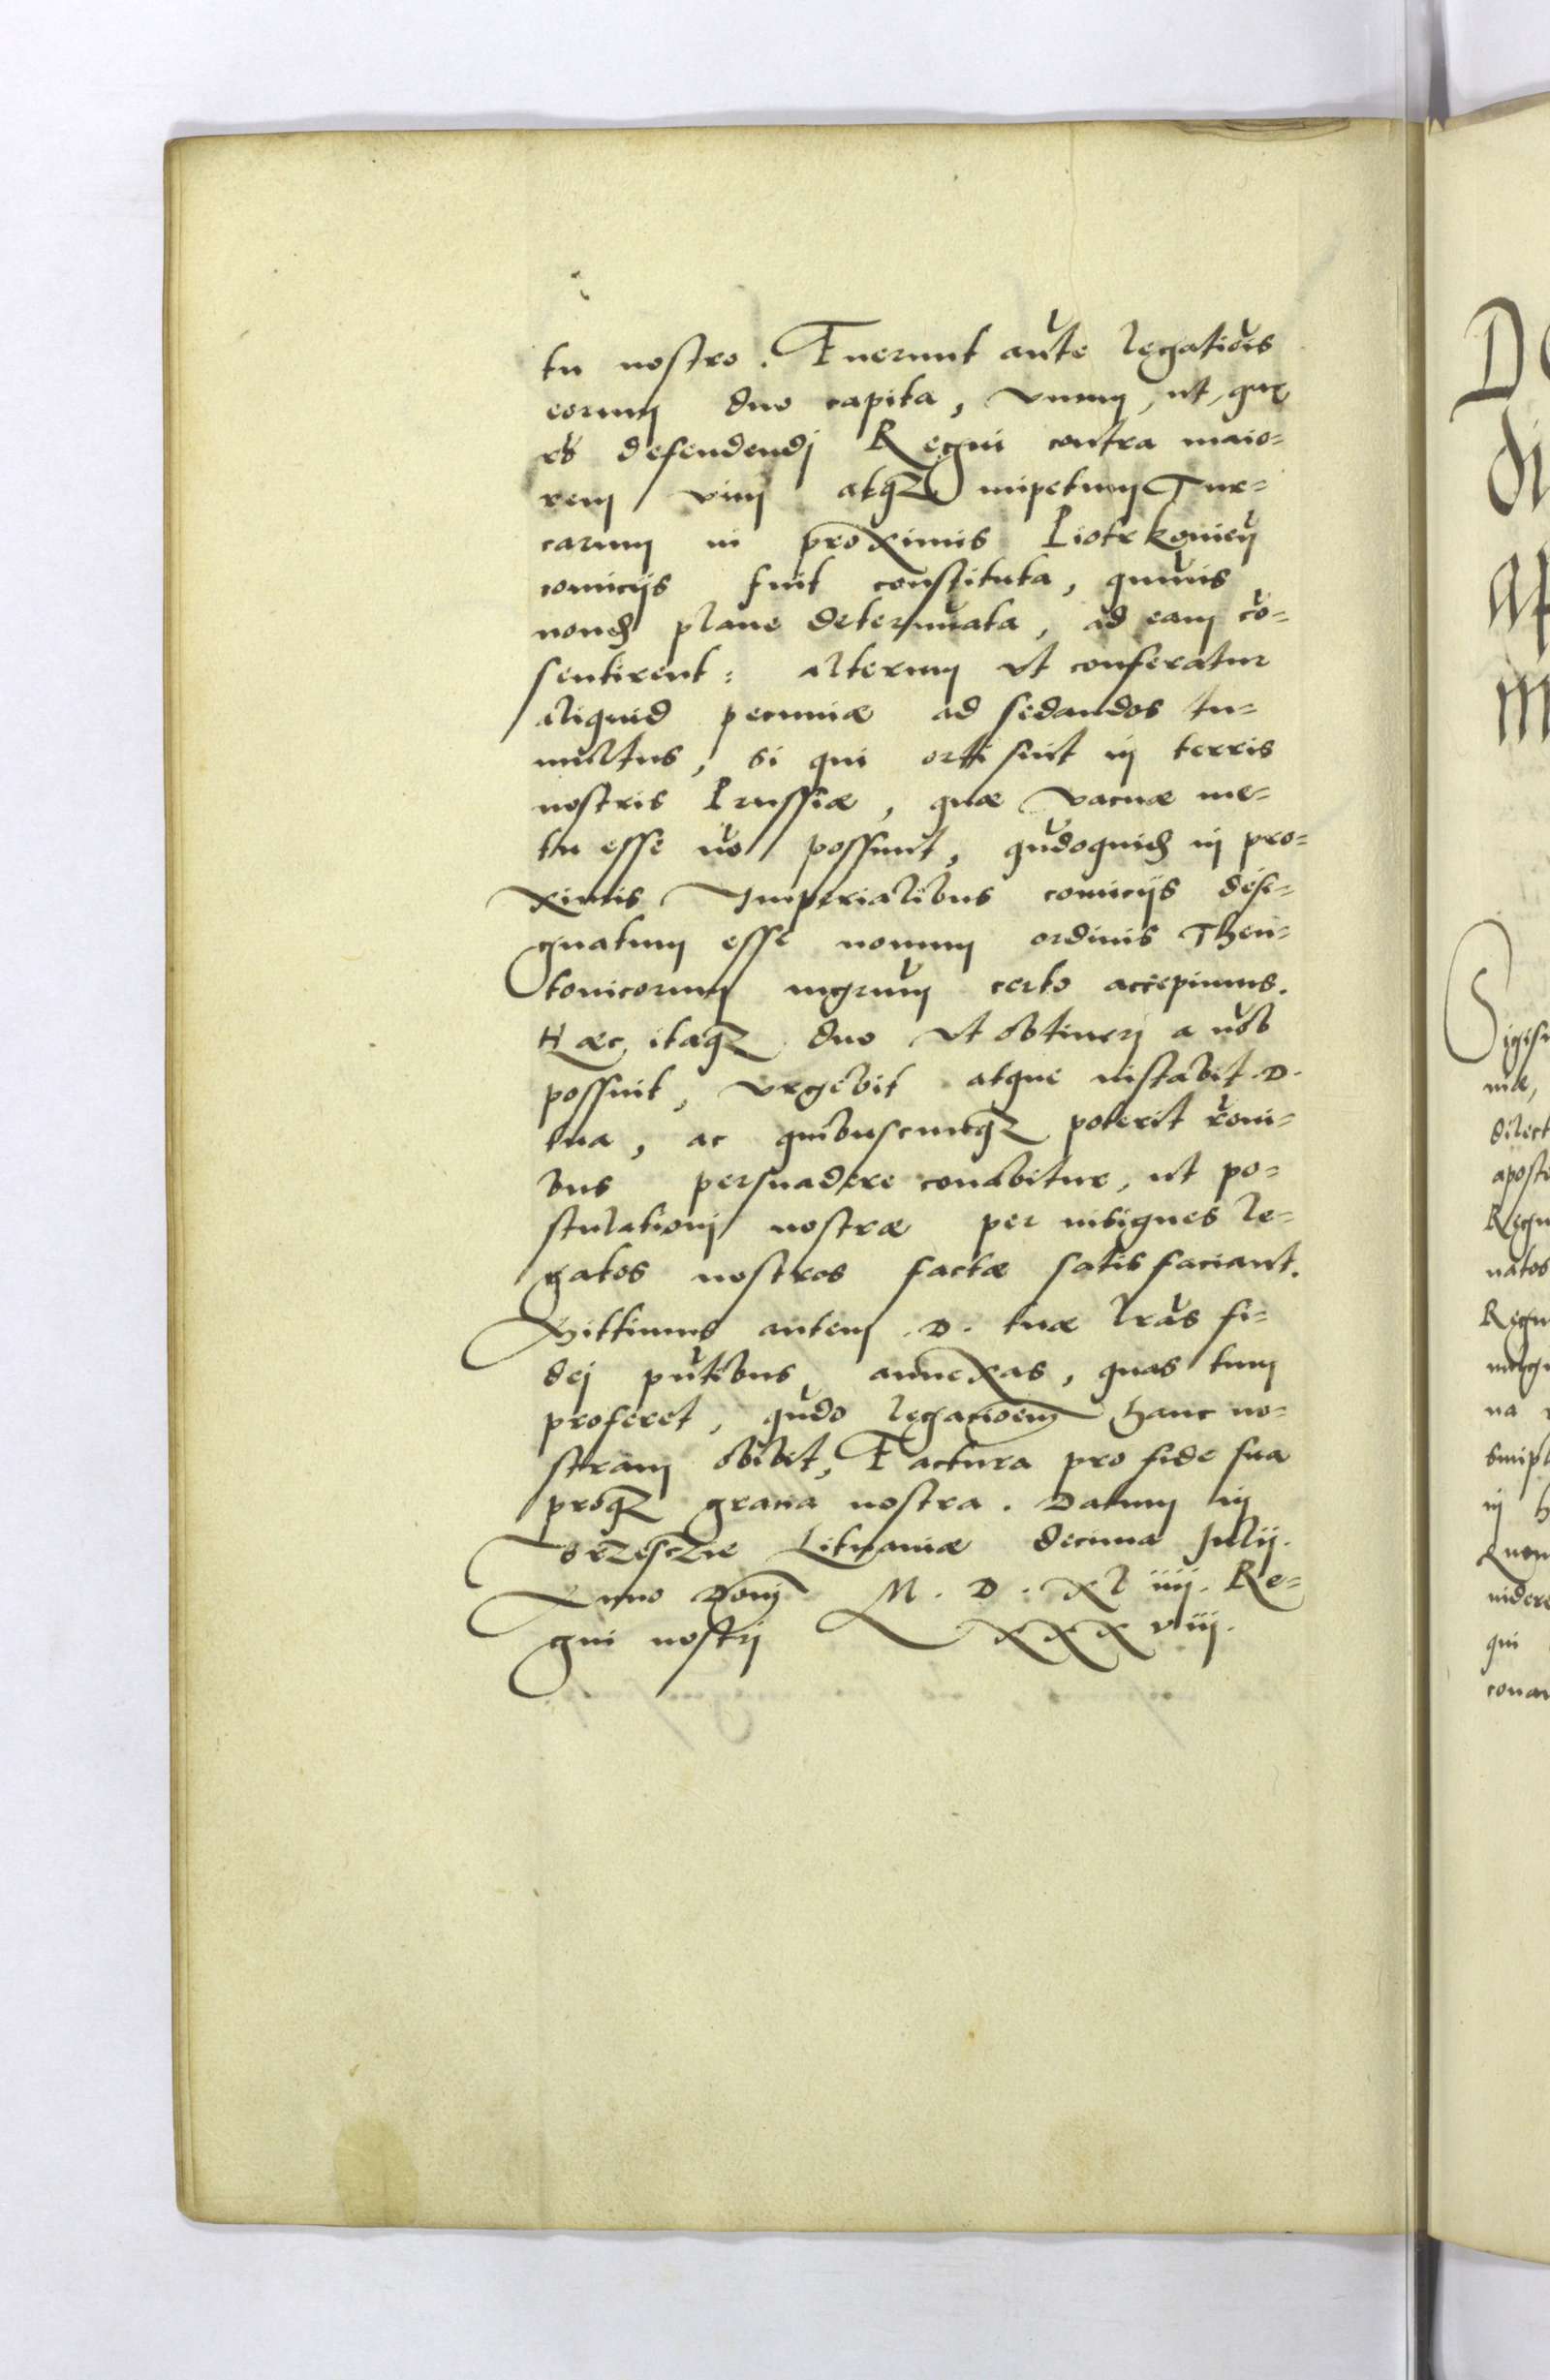 tu nostro. Fuerunt aũte legatiõis
eorum duo capita, vnum, ut, quæ
rõ defendendj Regni contra maio=
rem vim atq₃ impetum Tur=
carum in proximis Piotrkovieñ
comicijs fuit constituta, quãuis
nond plane determinata, ad eam cõ=
sentirent: alterum vt conferatur
aliquid pecuniæ ad sedandos tu=
multus, si qui orti sint in terris
nostris Prussiæ, quæ vacuæ me=
tu esse nõ possunt, qũdoquid in pro=
ximis Imperialibus comicijs desi=
gnatum esse nouum ordinis Theu=
tonicorum mgrum̃ certo accepimus.
Hæc itaq₃ duo vt obtinerj a nõb
possint, vrgebit atque instabit .D.
tua, ac quibuscunq₃ poterit rõni=
bus persuadere conabitur, ut po=
stulationj nostræ per insignes le=
gatos nostros factæ satis faciant.
Mittimus autem .D. tuæ lrãs fi=
dej pñtibus annexas, quas tum
proferet, qũdo legacioem hanc no=
stram obibit, Factura pro fide sua
proq₃ gratia nostra. Datum in
Brzesczie Lituaniæ decima Julij.
Anno Domj M. D. xl iiij. Re=
gni nostrj xxxviij.
D
di
Ap
M
Sigis
niæ,
dilect
aposto
Regn
natos
Regn
magn
na
in h
Quem
uidere
qui
conan